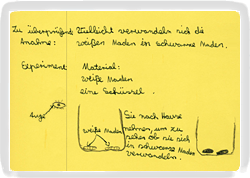 Zu überprüfende Vielleicht verwandeln sich die
Anahme: weißen Maden in schwarze Maden.
Experiment Material:
weiße Maden
eine Schüssel.
Auge
weiße Maden
Sie nach Hause
nehmen, um zu
sehen ob sie sich
in schwarze Maden
verwandeln.